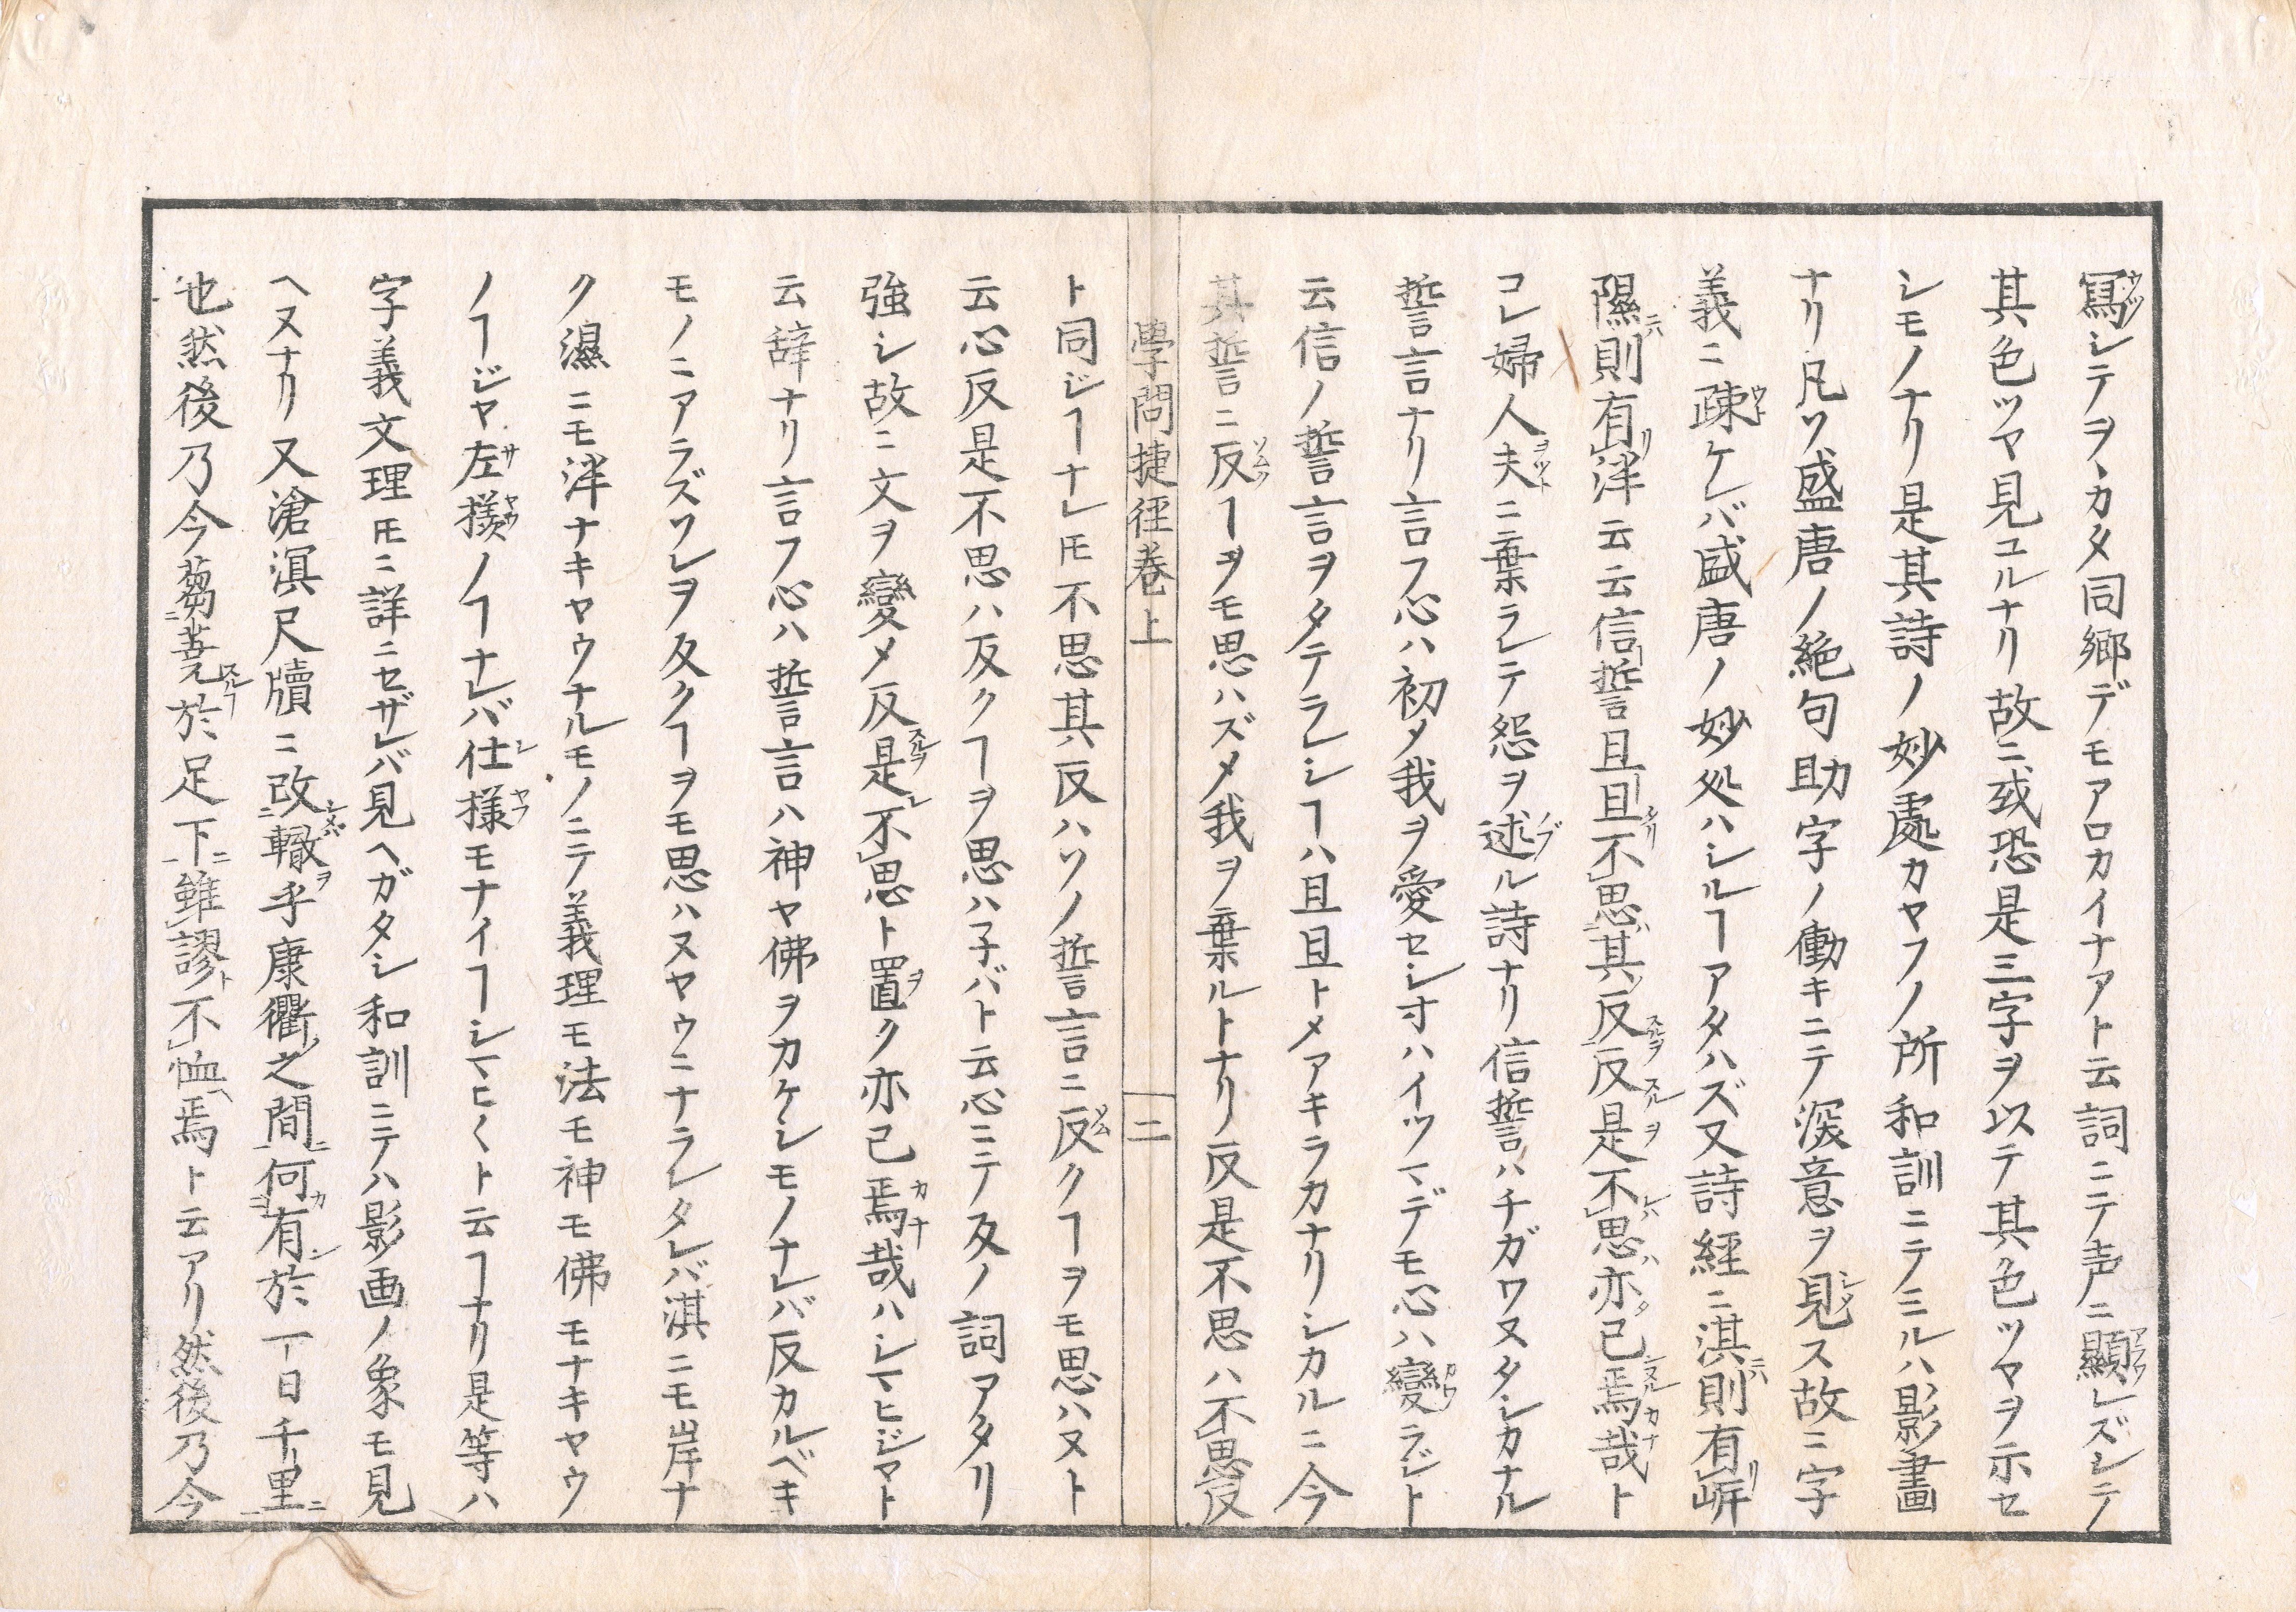 寫シテヲヽカタ同郷デモアロカイナアト云詞ニテ声ニ顯レズシテ
其色ツヤ見ユルナリ故ニ或恐是三字ヲ以テ其色ツヤヲ示セ
シモノナリ是其詩ノ妙處カヤフノ所和訓ニテミルハ影畫
ナリ凡ソ盛唐ノ絶句助字ノ働キニテ深意ヲ見ス故ニ字
義ニ疎ケレバ盛唐ノ妙処ハシルヿアタハズ又詩経ニ淇則有岸
隰則有泮云云信誓旦旦不思其反反是不思亦已焉哉ト
コレ婦人夫ニ棄ラレテ怨ヲ述ル詩ナリ信誓ハチガワヌタシカナル
誓言ナリ言フ心ハ初メ我ヲ愛セシ寸ハイツマデモ心ハ變ラジト
云信ノ誓言ヲタテラレシヿハ旦旦トメアキラカナリシカルニ今
其誓言ニ反ヿヲモ思ハズメ我ヲ棄ルトナリ反是不思ハ不思反
學問捷徑巻上 二
ト同ジヿナレ𪜈不思其反ハソノ誓言ニ反クヿヲモ思ハヌト
云心反是不思ハ反クヿヲ思ハ子バト云心ニテ反ノ詞アタリ
強シ故ニ文ヲ變メ反是不思ト置ク亦已焉哉ハシマヒジマト
云辞ナリ言フ心ハ誓言ハ神ヤ佛ヲカケシモノナレバ反カルベキ
モノニアラズソレヲ反クヿヲモ思ハヌヤウニナラレタレバ淇ニモ岸ナ
ク濕ニモ泮ナキヤウナルモノニテ義理モ法モ神モ佛モナキヤウ
ノヿジヤ左様ノヿナレバ仕様モナイヿシマヒ〱ト云ヿナリ是等ハ
字義文理𪜈ニ詳ニセザレバ見ヘガタシ和訓ニテハ影画ノ象モ見
ヘヌナリ又滄溟尺牘ニ改轍乎康衢之間何有於一日千里
也然後乃今芻蕘於足下雖謬不恤焉ト云アリ然後乃今